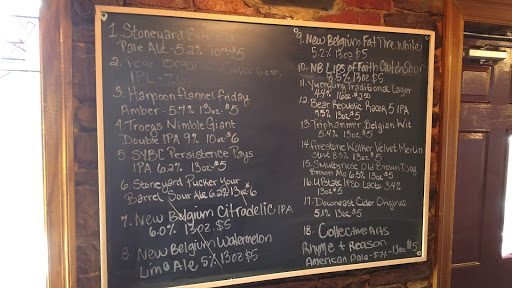 1. Stoneyard
Pale Ale - 5.2% 10oz $5
2. Year
IPL - 7.
3. Harpoon flannel Friday
Amber - 5.7% 13oz $5
4. Troegs Nimble Giant
Double IPA 9% 10oz $6
5. SYBC Persistence Pays
IPA 6.2% 13oz $5
6. Stoneyard Pucker Your
Barrel Sour Ale 6.2% 13oz $6
7. New Belgium Citradelic IPA
6.0% 13oz $5
8. New Belgium Watermelon
Lime Ale 5% 13oz $5
9. New Belgium Fat Tire White
5.2% 13oz $5
10. NB Lips of Faith Clutch Sour
9.5% 13oz $5
11. Yuengling Traditional Lager
4.4% 16oz $2.50
12. Bear Republic Racer 5 IPA
7.5% 13oz $5
13. Triphammer Belgian Wit
5.4% 13oz $5
14. Firestone Walker Velvet Merlin
Stout 8.5% 13oz $5
15. Smuttynose Old Brown Dog
Brown Ale 6.5% 13oz $5
16. Upstate IPso Lacto 3.4%
13oz $5
17. Downeast Cider Original
5.1% 13oz $5
18. Collective Arts
Rhyme + Reason
American Pale - 5.7% - 13oz $5